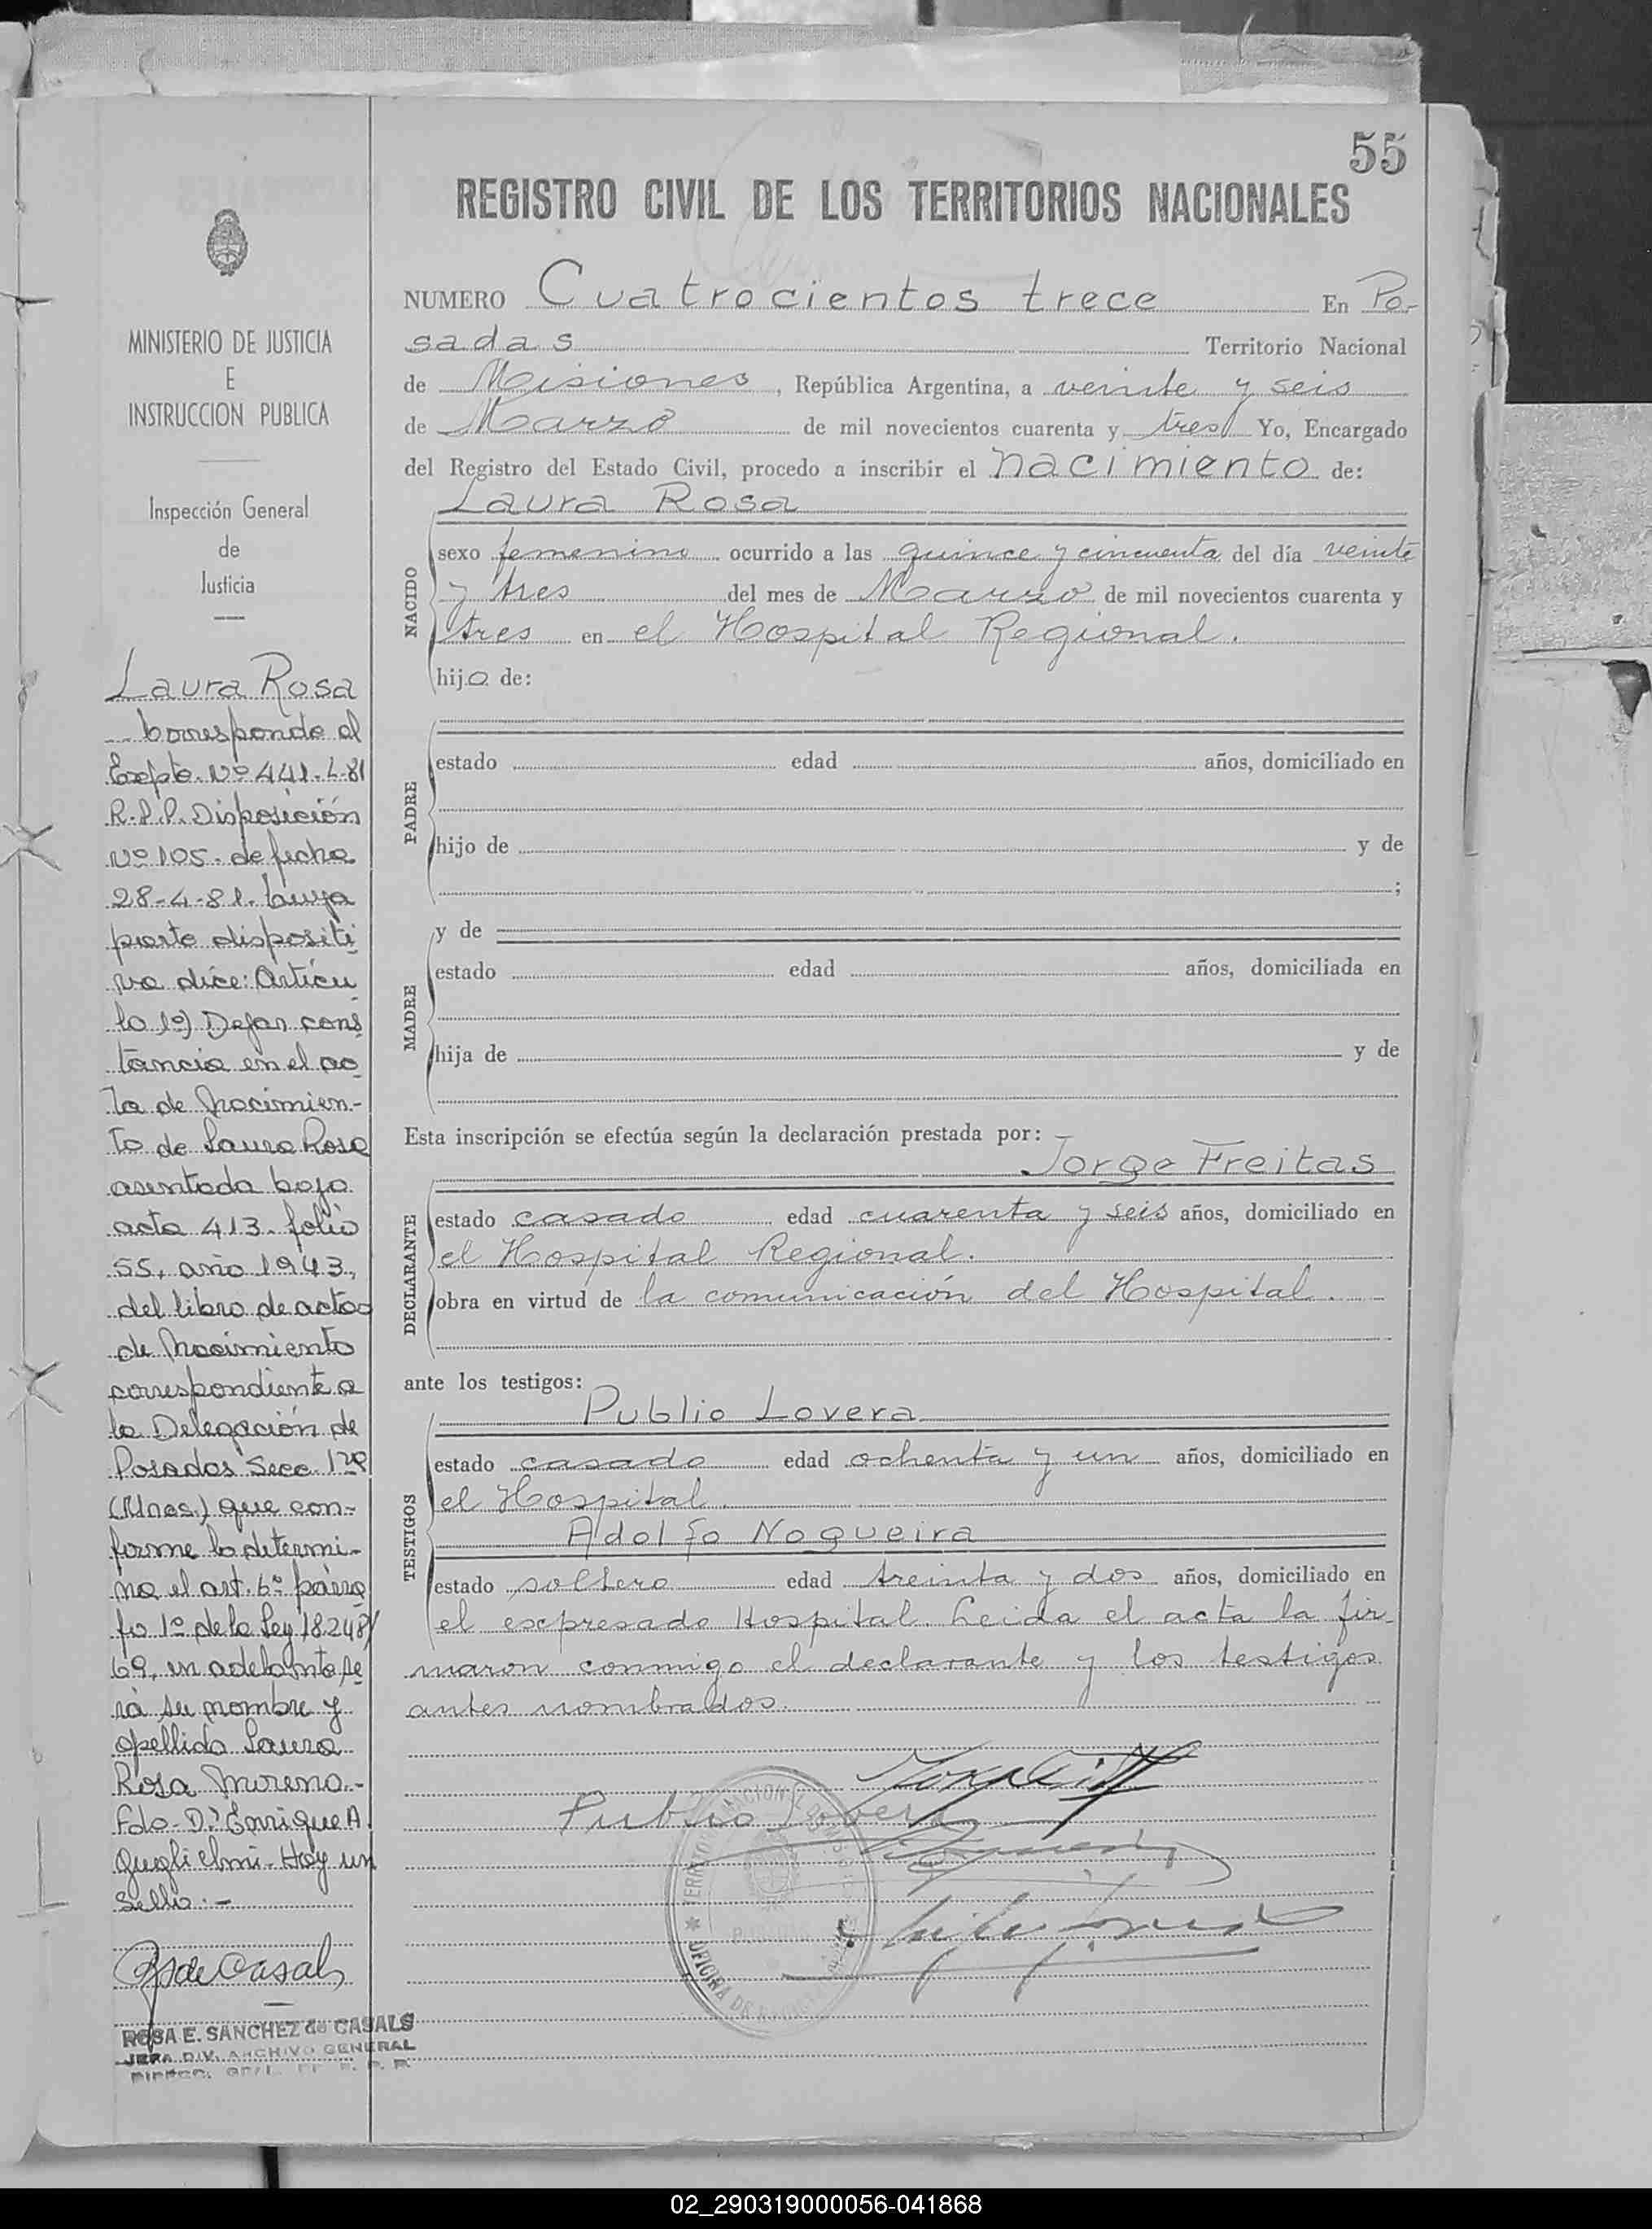 55
REGISTRO CIVIL DE LOS TERRITORIOS NACIONALES
MINISTERIO DE JUSTICIA
E
INSTRUCCION PUBLICA
Inspección General
de
Justicia
NUMERO Cuatrocientos trece En Po-
sadas Territorio Nacional
de Misiones, República Argentina, a veinte y seis
de Marzo de mil novecientos cuarenta y tres Yo, Encargado
del Registro del Estado Civil, procedo a inscribir el nacimiento de:
Laura Rosa
NACIDO
sexo femenino ocurrido a las quince y cincuenta del día veinte
y tres del mes de Marzo de mil novecientos cuarenta y
tres en el Hospital Regional.
hija de:
PADRE
estado edad años, domiciliado en
hijo de y de
;
MADRE
y de
estado edad años, domiciliada en
hija de y de
Esta inscripción se efectúa según la declaración prestada por:
Jorge Freitas
DECLARANTE
estado casado edad cuarenta y seis años, domiciliado en
el Hospital Regional.
obra en virtud de la comunicación del Hospital.
ante los testigos:
Publio Lovera
TESTIGOS
estado casado edad ochenta y un años, domiciliado en
el Hospital.
Adolfo Nogueira
estado soltero edad treinta y dos años, domiciliado en
el expresado Hospital. Leida el acta la fir-
maron conmigo el declarante y los testigos
antes nombrados.
Publio Lovera
Laura Rosa
Corresponde al
Expte. Nº 441-L-81
R.P.P. Disposición
Nº 105. de fecha
28-4-81. Cuya
parte dispositi
va dice: Artícu
lo 1º) Dejar cons
tancia en el ac
ta de Nacimien-
to de Laura Rosa
asentada bajo
acta 413. folio
55, año 1943,
del libro de actas
de Nacimiento
correspondiente a
la Delegación de
Posadas Secc. 1ra
(Mnes.) que con-
forme lo determi-
na el art. 6º párra
fo 1º de la Ley 18.248/
69, en adelante se
rá su nombre y
apellido Laura
Rosa Moreno.-
Fdo. Dr. Enrique A.
Guglielmi. Hay un
sello.-
RsdeCasals
ROSA E. SANCHEZ de CASALS
JEFA DIV. ARCHIVO GENERAL
02_290319000056-041868